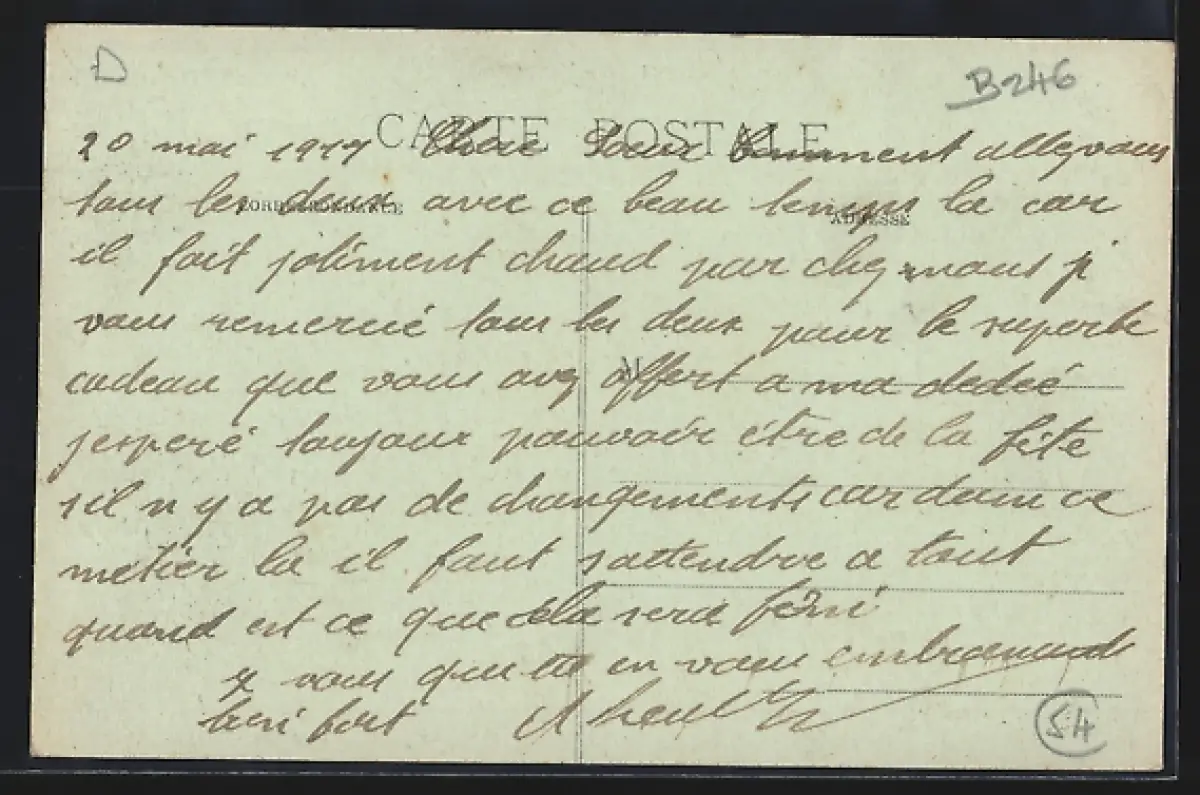 D
B-246
CARTE POSTALE
20 mai 1917 Chère Sœur Comment allez vous
CORRESPONDANCE
ADRESSE
tous les deux avec ce beau temps la car
il fait joliment chaud par chez nous je
vous remercié tous les deux pour le superbe
cadeau que vous avez offert a ma dedeé
M
j'esperé toujour pouvoir être de la fête
s'il n y a pas de changements car dans ce
métier la il faut s'attendre a tout
quand est ce que cela sera fini
je vous quitte en vous embrassant
bien fort
54